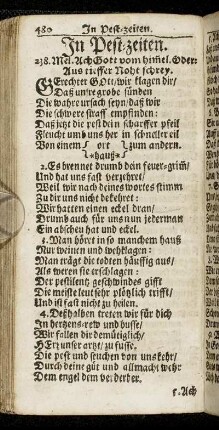 480 In Pest-zeiten.
In Pest-zeiten.
238. Mel. Ach Gott vom him̄el. Oder:
Aus tieffer Noht schrey.
GErechter Gott, wir klagen dir/
Daß unsre grobe sünden
Die wahre ursach seyn/ daß wir
Die schwere straff empfinden:
Daß jetzt die pest dein scharffer pfeil
Fleucht umb uns her in schneller eil
Von einem ort zum andern.
hauß
2. Es brennet drumb dein feuer-grim̄/
Und hat uns fast verzehret/
Weil wir nach deines wortes stimm
Zu dir uns nicht bekehret:
Wir hatten einen ekel dran/
Drumb auch für uns nun jederman
Ein abscheu hat und eckel.
3. Man hört in so manchem hauß
Nur weinen und wehklagen:
Man trägt die todten häuffig aus/
Als weren sie erschlagen:
Der pestilentz geschwindes gifft
Die meiste leut sehr plötzlich trifft/
Und ist fast nicht zu heilen.
4. Deßhalben treten wir für dich
In hertzens-rew und busse/
Wir fallen dir demütiglich/
HErr unser artzt/ zu fusse.
Die pest und seuchen von uns kehr/
Durch deine güt und allmacht wehr
Dem engel dem verderber.
5. Ach